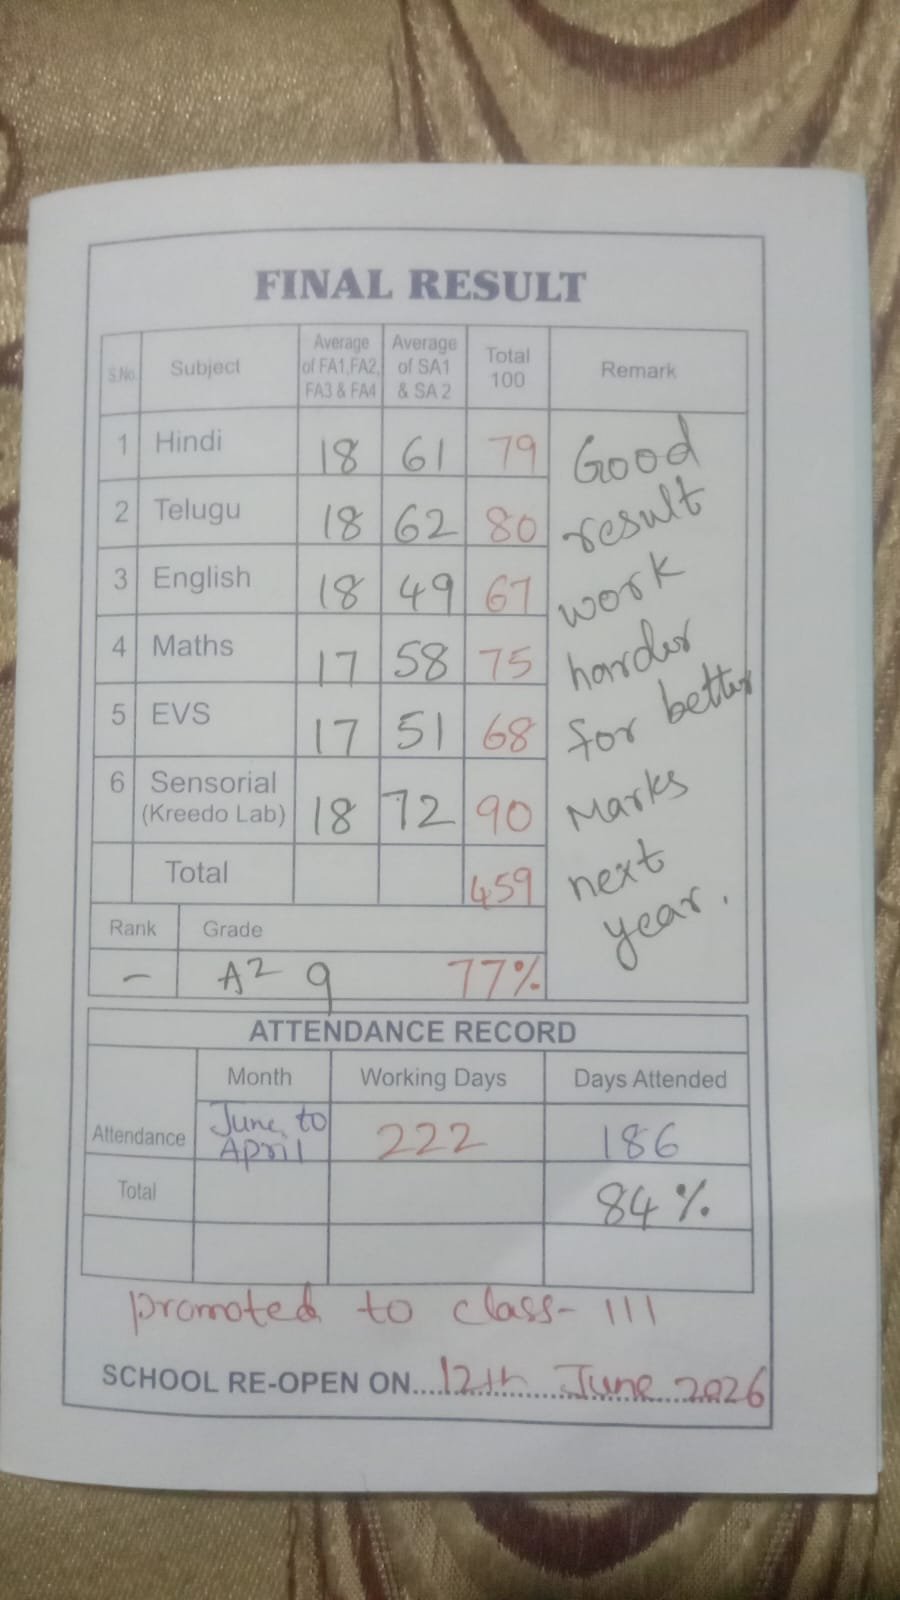 FINAL RESULT
S.No. Subject Average of FA1,FA2, FA3 & FA4 Average of SA1 & SA 2 Total 100 Remark
1 Hindi 18 61 79 Good
2 Telugu 18 62 80 result
3 English 18 49 67 work
4 Maths 17 58 75 harder
5 EVS 17 51 68 for better
6 Sensorial (Kreedo Lab) 18 72 90 Marks
Total 459 next
year.
Rank Grade
- A2 9 77%
ATTENDANCE RECORD
Month Working Days Days Attended
Attendance June to April 222 186
Total 84%
promoted to class- III
SCHOOL RE-OPEN ON....12th June 2026